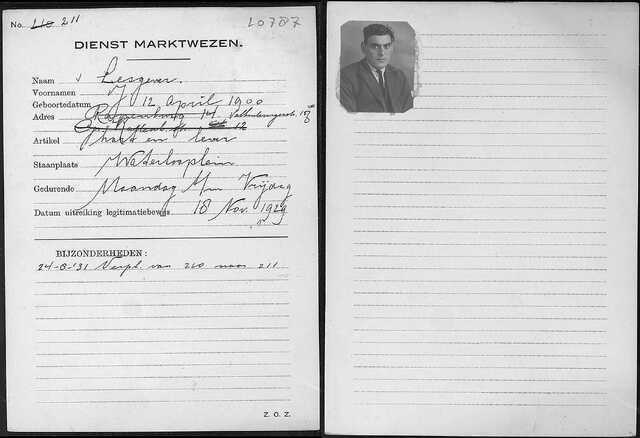 No. 210 211 L0787
DIENST MARKTWEZEN.
Naam v Lesgever.
Voornamen J
Geboortedatum 12 April 1900
Adres Rapenburg 14 Valkenburgerstr. 
12
Artikel hart en lever
Staanplaats Waterlooplein
Gedurende Maandag t/m Vrijdag
Datum uitreiking legitimatiebewijs 18 Nov. 1929
BIJZONDERHEDEN:
24-8-'31 Verpl. van 210 naar 211
Z. O. Z.